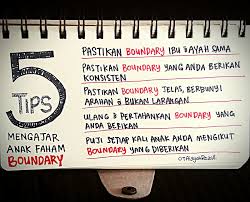 5
TIPS
MENGAJAR
ANAK FAHAM
BOUNDARY
PASTIKAN BOUNDARY IBU & AYAH SAMA
PASTIKAN BOUNDARY YANG ANDA BERIKAN
KONSISTEN
PASTIKAN BOUNDARY JELAS, BERBUNYI
ARAHAN & BUKAN LARANGAN
ULANG & PERTAHANKAN BOUNDARY YANG
ANDA BERIKAN
PUJI SETIAP KALI ANAK ANDA MENGIKUT
BOUNDARY YANG DIBERIKAN